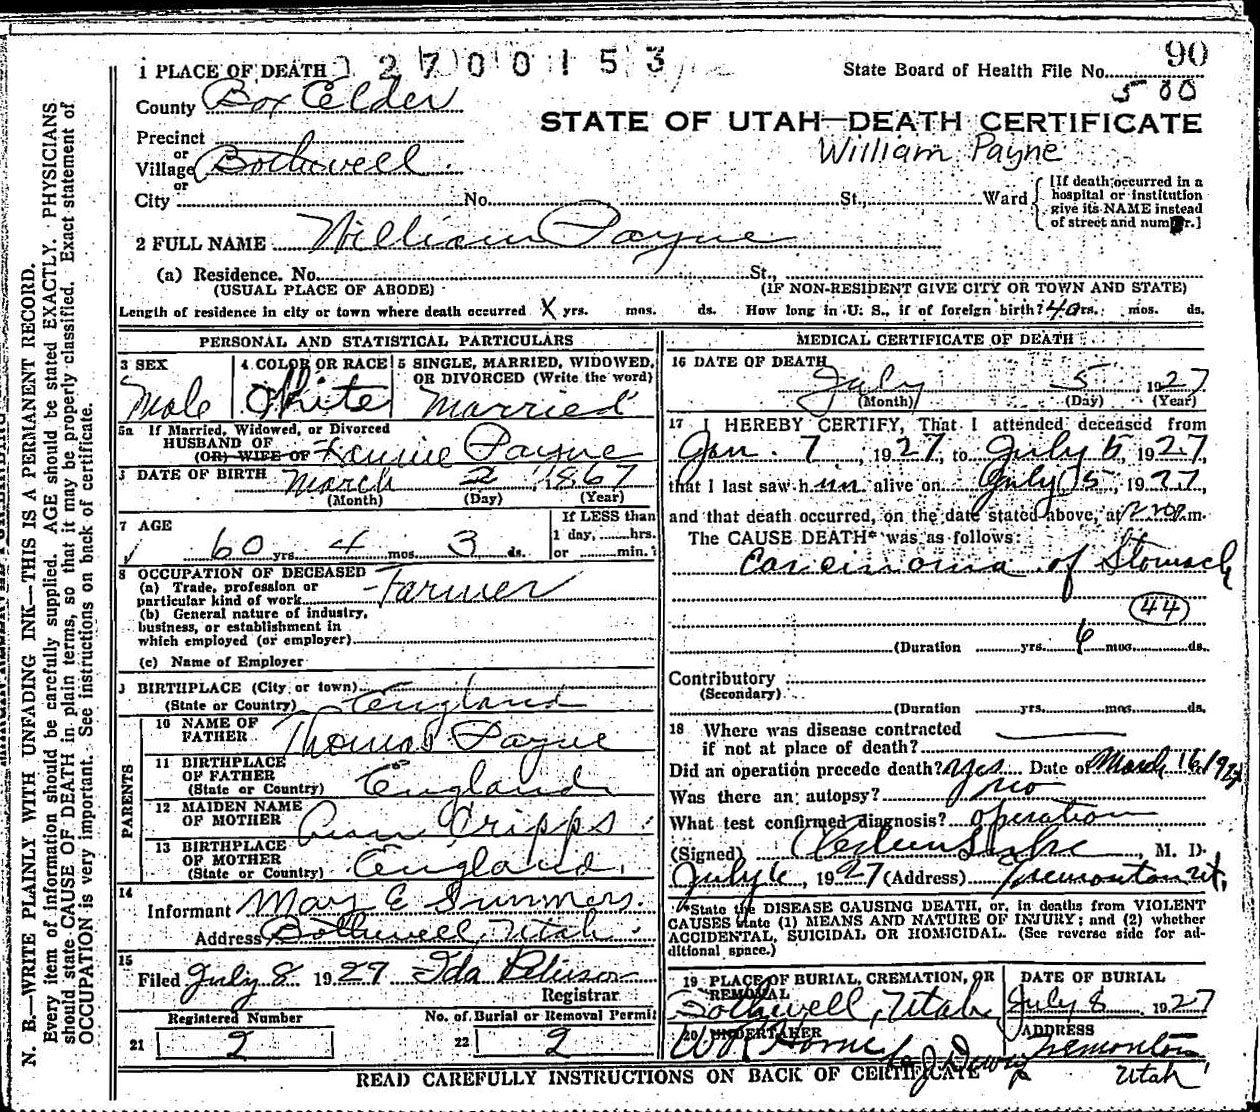 1 PLACE OF DEATH 2700153
State Board of Health File No. 90
500
County Box Elder
STATE OF UTAH—DEATH CERTIFICATE
William Payne
Precinct
or
Village Bothwell
or
City No. St., Ward
[If death occurred in a
hospital or institution
give its NAME instead
of street and number.]
2 FULL NAME William Payne
(a) Residence. No. St.,
(USUAL PLACE OF ABODE) (IF NON-RESIDENT GIVE CITY OR TOWN AND STATE)
Length of residence in city or town where death occurred X yrs. mos. ds. How long in U. S., if of foreign birth? 40 yrs. mos. ds.
PERSONAL AND STATISTICAL PARTICULARS
3 SEX
Male
4 COLOR OR RACE
White
5 SINGLE, MARRIED, WIDOWED,
OR DIVORCED (Write the word)
Married
5a If Married, Widowed, or Divorced
HUSBAND OF
(OR) WIFE OF Payne
DATE OF BIRTH March 2 1867
(Month) (Day) (Year)
7 AGE
60 yrs. 4 mos. 3 ds.
If LESS than
1 day, hrs.
or min.
8 OCCUPATION OF DECEASED
(a) Trade, profession or
particular kind of work Farmer
(b) General nature of industry,
business, or establishment in
which employed (or employer)
(c) Name of Employer
BIRTHPLACE (City or town)
(State or Country) England
PARENTS
10 NAME OF
FATHER Thomas Payne
11 BIRTHPLACE
OF FATHER
(State or Country) England
12 MAIDEN NAME
OF MOTHER Ann Cripps
13 BIRTHPLACE
OF MOTHER
(State or Country) England.
14
Informant Mary E Summers.
Address Bothwell, Utah
15
Filed July 8 1927 Ida
Registrar
Registered Number
21 2
No. of Burial or Removal Permit
22 2
MEDICAL CERTIFICATE OF DEATH
16 DATE OF DEATH
July 5 1927
(Month) (Day) (Year)
17 I HEREBY CERTIFY, That I attended deceased from
Jan. 7, 1927, to July 5, 1927,
that I last saw him alive on July 5, 1927,
and that death occurred, on the date stated above, at m.
The CAUSE DEATH* was as follows:
Carcinoma of Stomach
44
(Duration yrs. 6 mos. ds.
Contributory
(Secondary)
(Duration yrs. mos. ds.
18 Where was disease contracted
if not at place of death?
Did an operation precede death? yes Date of March 16, 1927
Was there an autopsy? no
What test confirmed diagnosis? operation
(Signed) M. D.
July 6, 1927 (Address) Tremonton Ut.
*State the DISEASE CAUSING DEATH, or, in deaths from VIOLENT
CAUSES state (1) MEANS AND NATURE OF INJURY; and (2) whether
ACCIDENTAL, SUICIDAL OR HOMICIDAL. (See reverse side for ad-
ditional space.)
19 PLACE OF BURIAL, CREMATION, OR
REMOVAL
Bothwell, Utah
DATE OF BURIAL
July 8 1927
20 UNDERTAKER
ADDRESS
Tremonton
Utah
READ CAREFULLY INSTRUCTIONS ON BACK OF CERTIFICATE
N. B.—WRITE PLAINLY WITH UNFADING INK—THIS IS A PERMANENT RECORD.
Every item of information should be carefully supplied. AGE should be stated EXACTLY. PHYSICIANS
should state CAUSE OF DEATH in plain terms, so that it may be properly classified. Exact statement of
OCCUPATION is very important. See instructions on back of certificate.